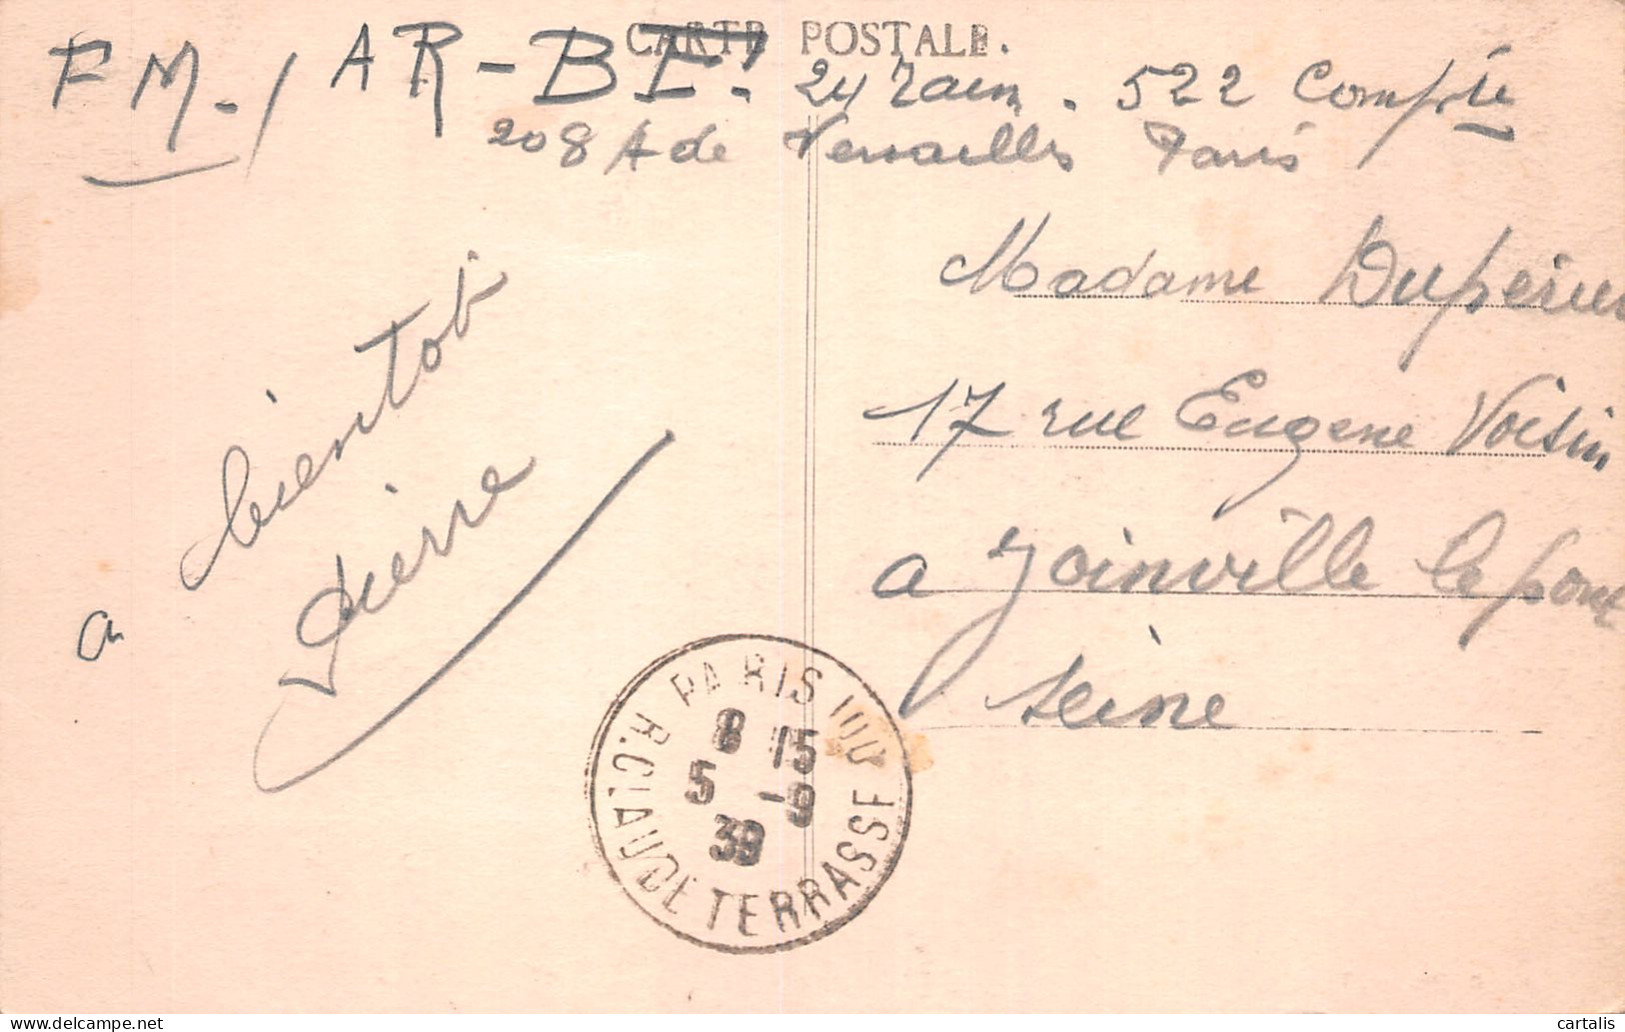 CARTE POSTALE.
FM-/AR-BE. 24 Train. 522 Compie
208 A de Versailles Paris
Madame Duperieu
17 rue Eugene Voisin
a Joinville le pont
Seine
a bientot
Pierre
PARIS VIII
8 15
5 -9
39
R. CLAUDE TERRASSE
cartalis